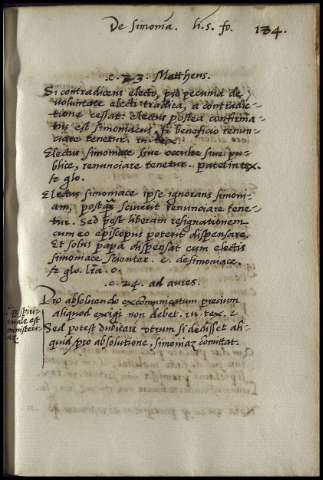 De simonia. li. 5. fo. 134.
.c. 23. Mattheus.
Si contradicens electo, pro pecunia de
voluntate electi tradita, a contradic-
tione cessat: Electus postea confirma-
tus est simoniacus, et beneficio renun-
ciare tenetur. in tex.
Electus simoniace sive occulte sive pu-
blice, renunciare tenetur. patet in tex.
et glo.
Electus simoniace ipse ignorans simoni-
am, postquam sciverit renunciare tene-
tur. Sed post liberam resignationem
cum eo episcopus poterit dispensare.
Et solus papa dispensat cum electis
simoniace scienter. c. de simoniace.
et glo. lra. o.
.c. 24. ad aures.
Pro absolvendo excommunicatum precium
aliquod exigi non debet. in tex.
Sed potest dubitari utrum si dedisset ali-
quid pro absolutione, simoniam comittat.